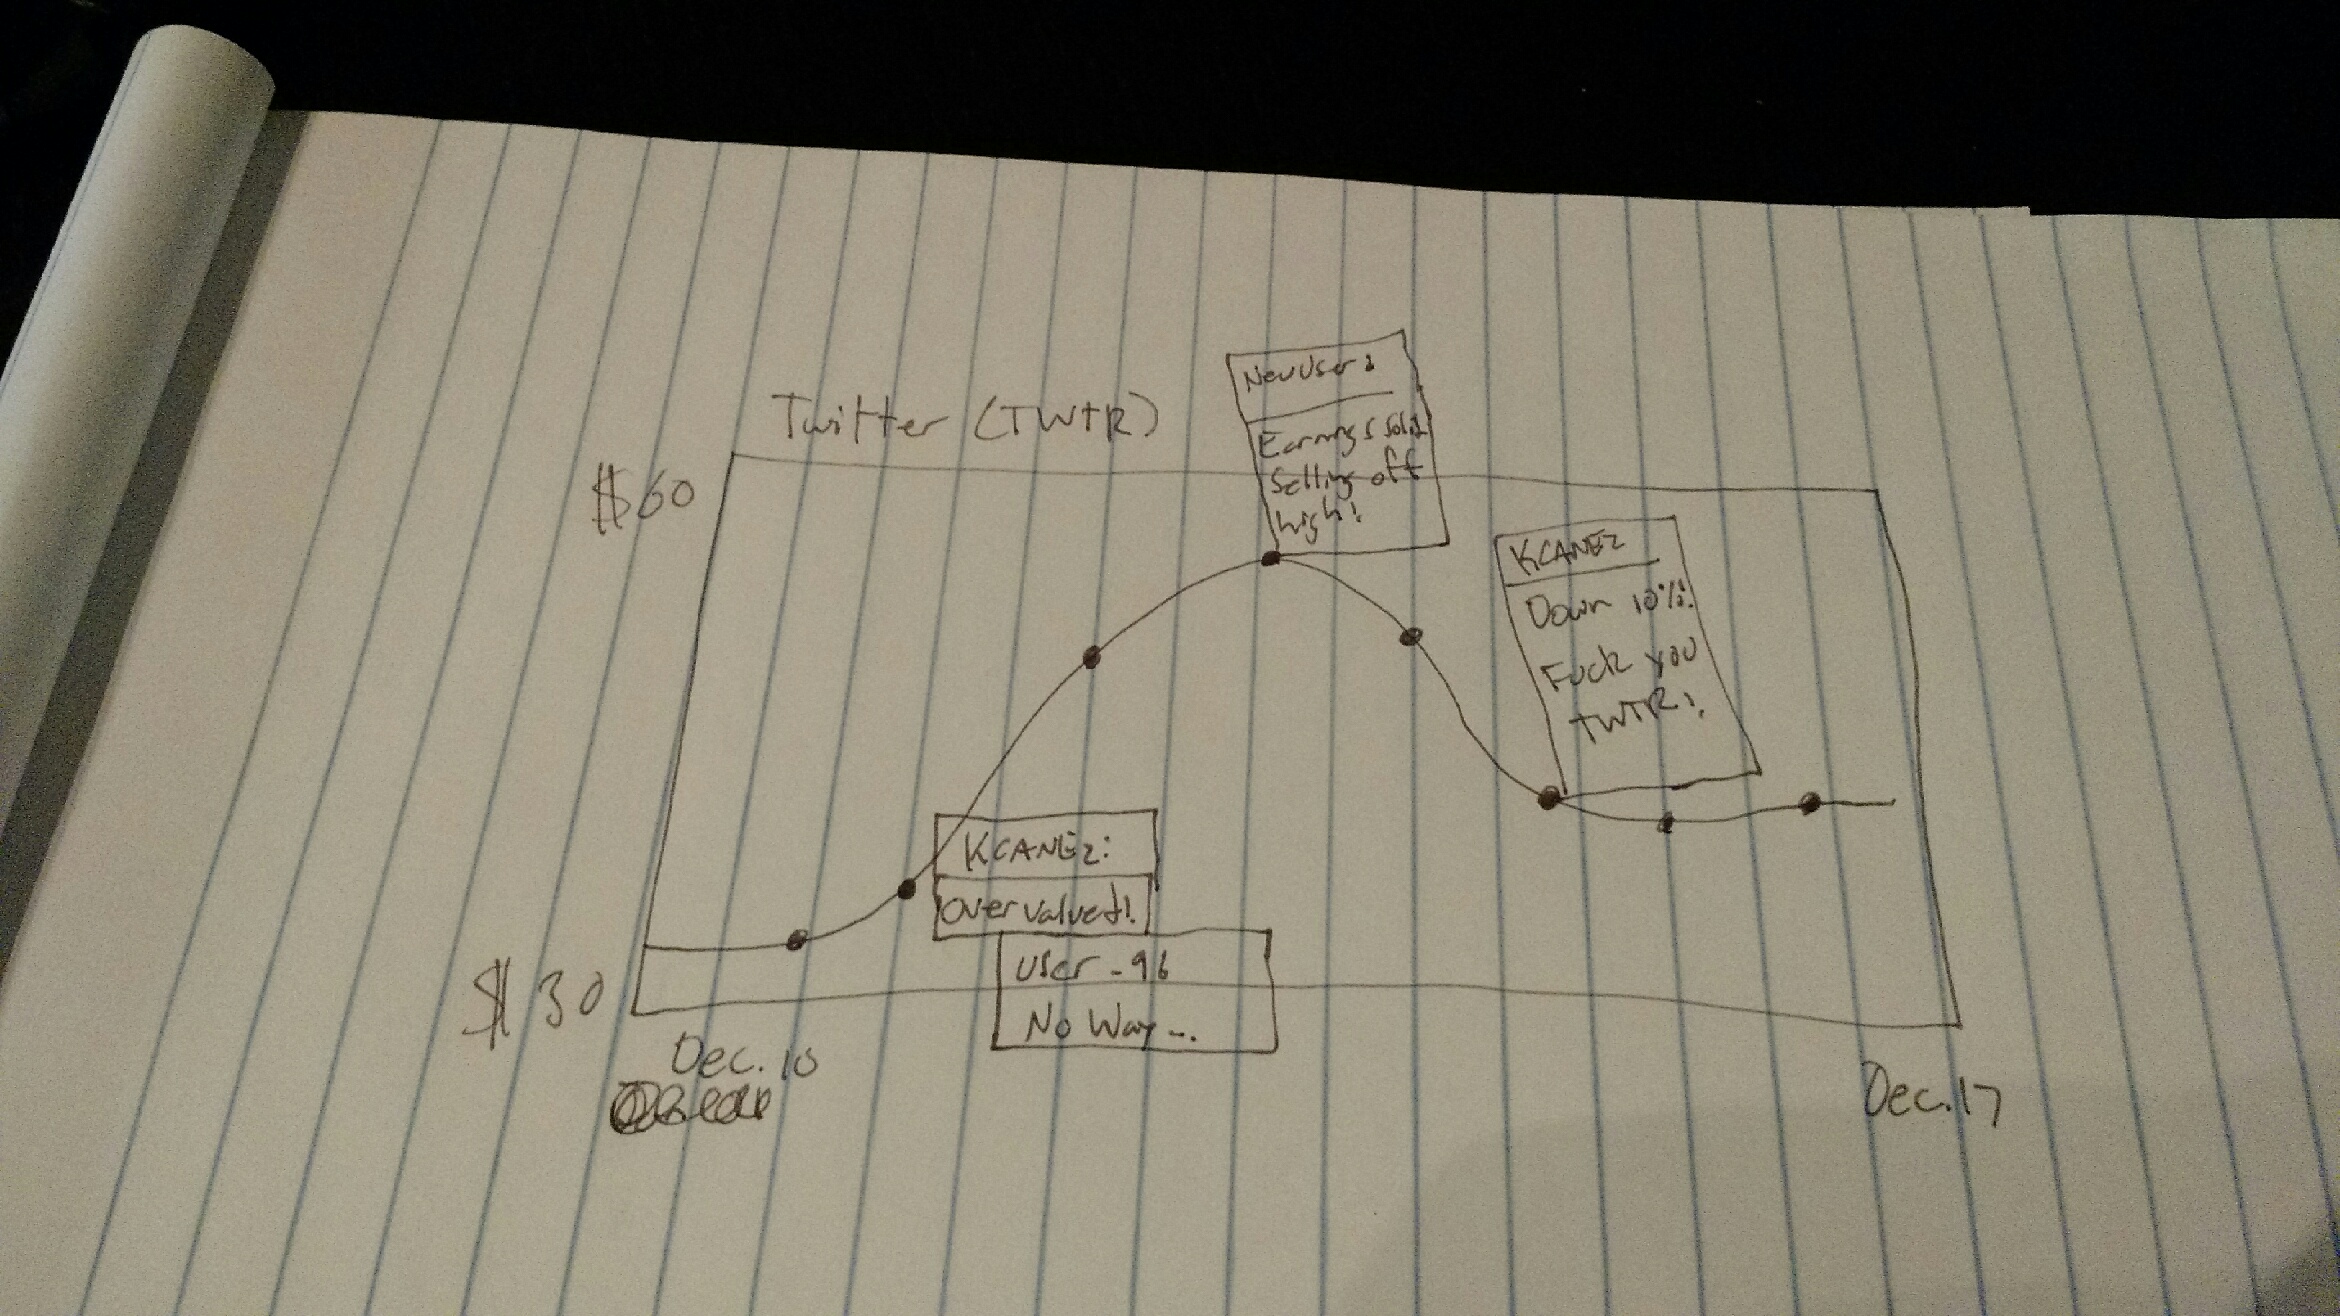 Twitter (TWTR)
$60
New User:
Earnings solid
Selling off
high!
KCANE2
Down 10%!
Fuck you
TWTR!
KCANE2:
Overvalued!
User_96
No Way...
$30
Dec. 10
Dec. 17